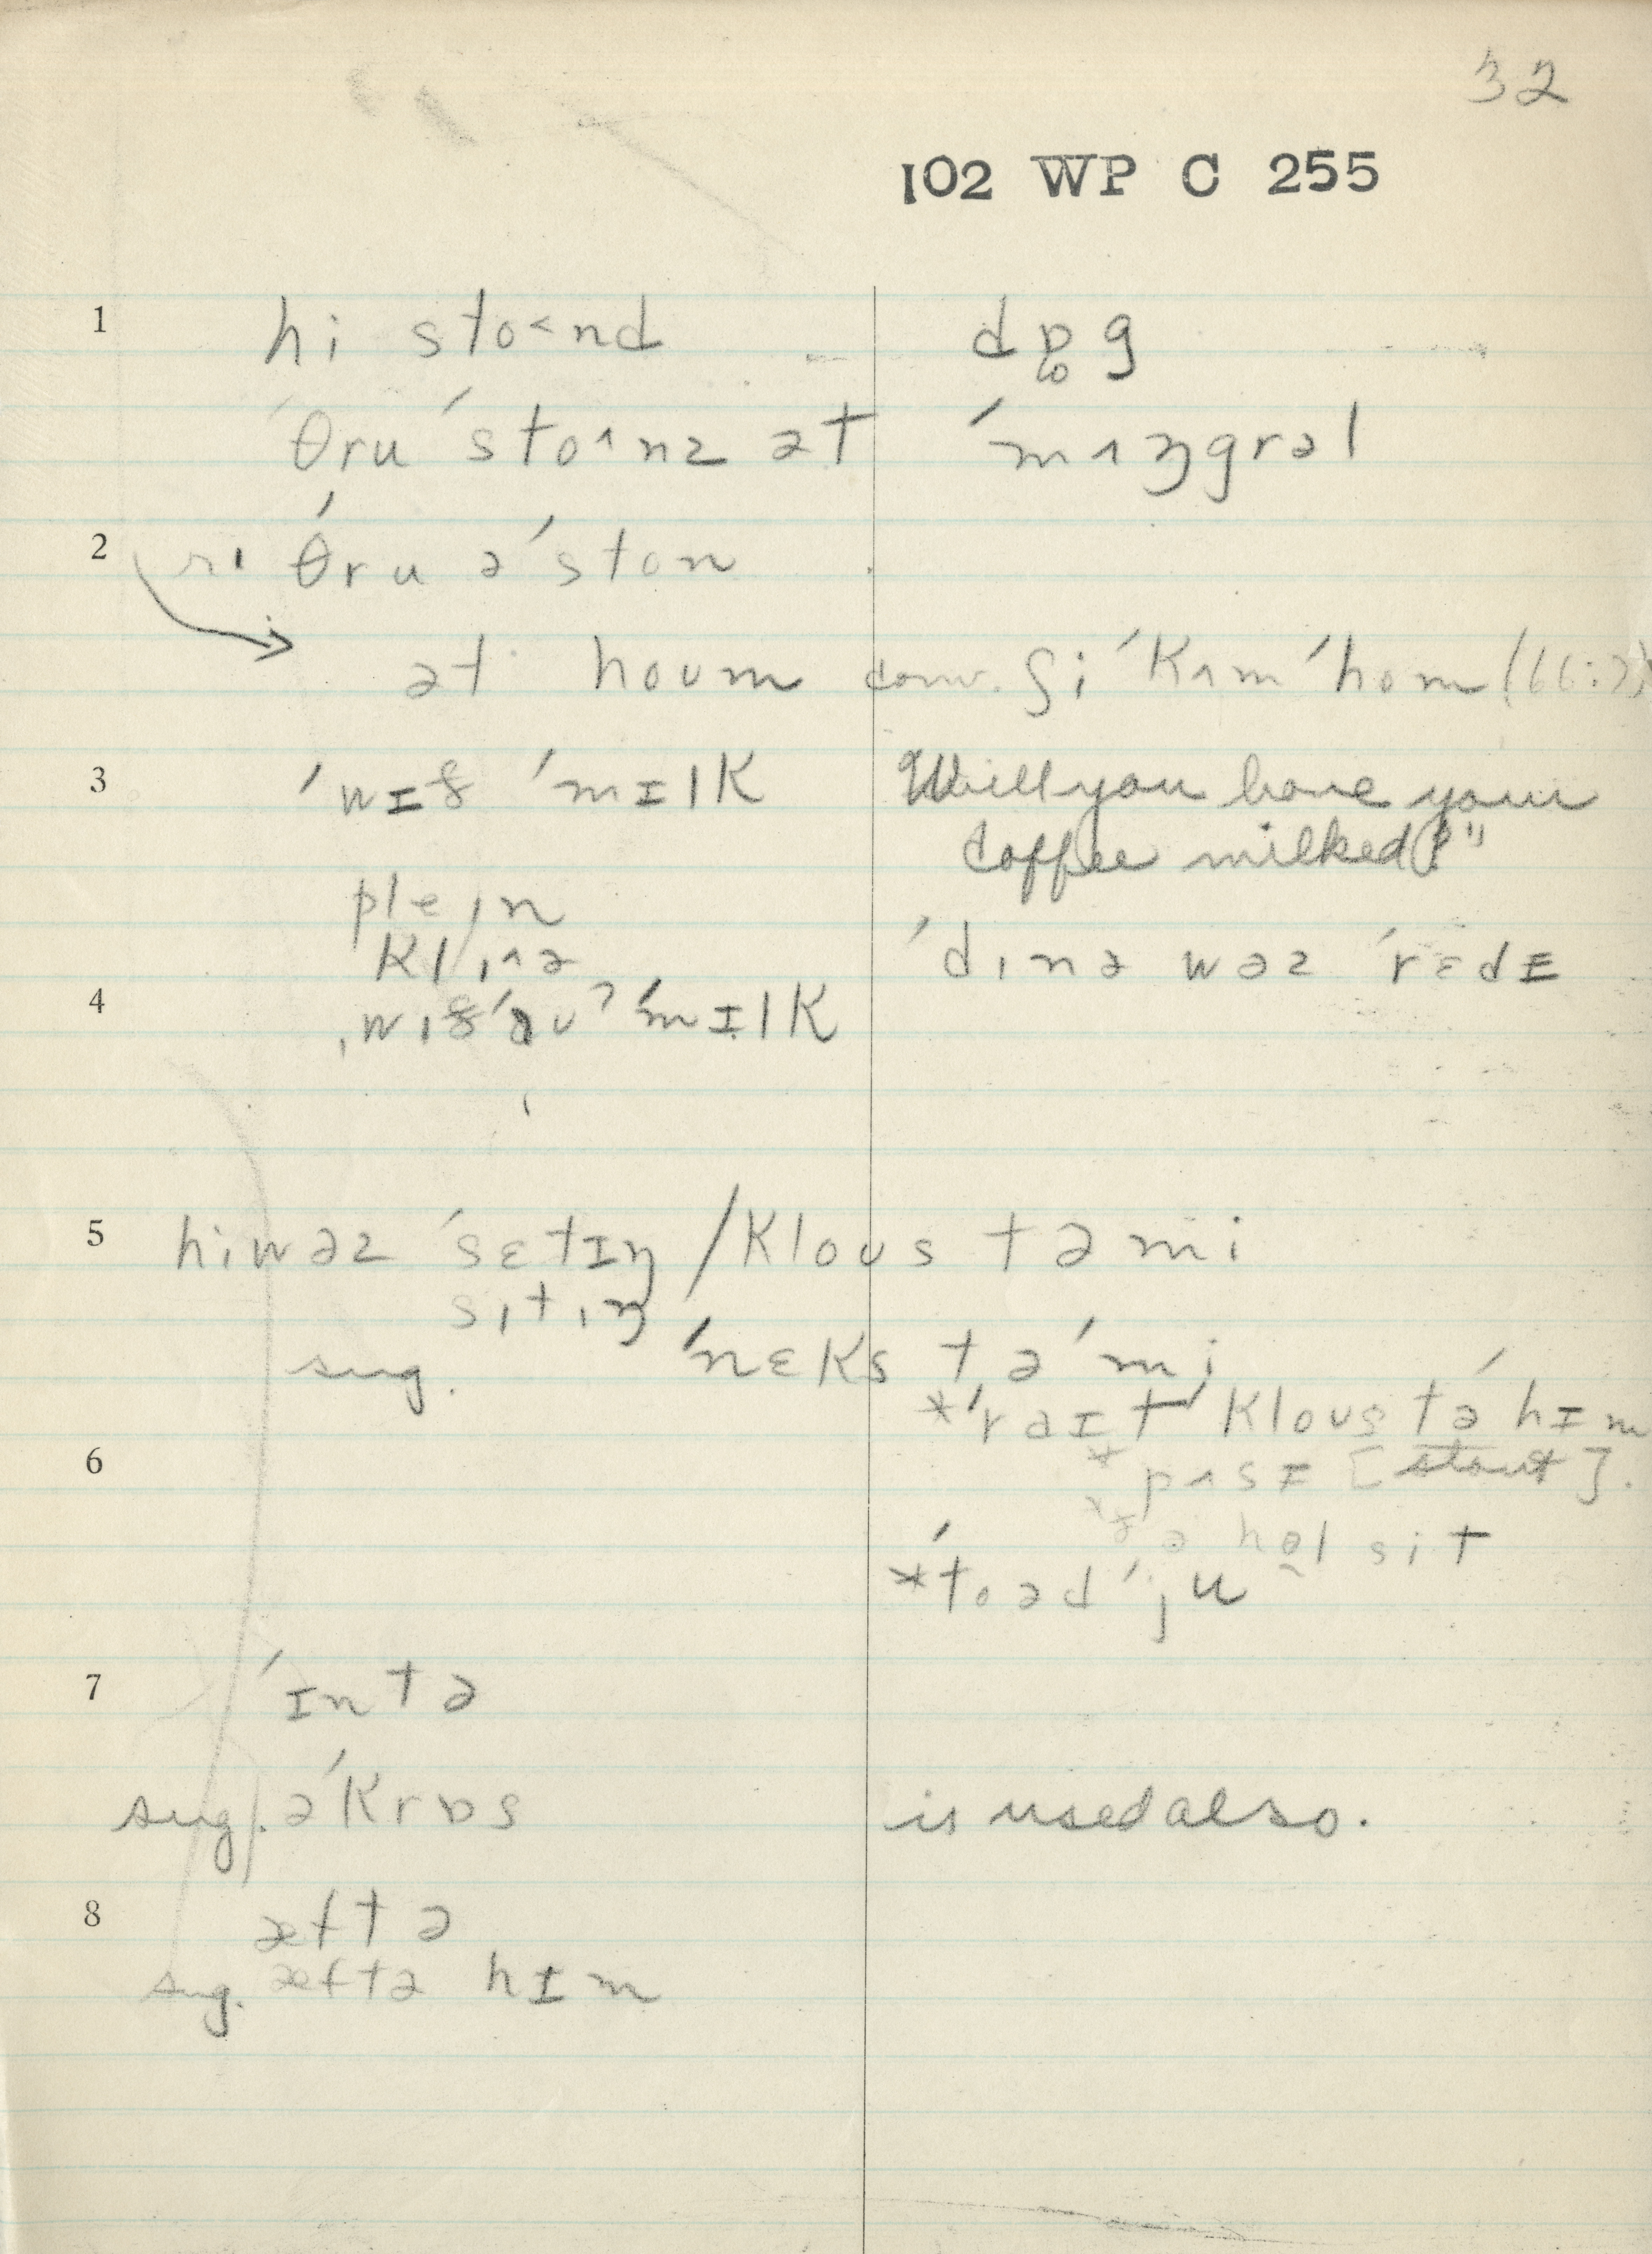 32
102 WP C 255
1 hi sto<nd dɒg
ˈθru ˈsto^nz ət ˈmʌŋgrəl
2 r. θru ə ˈston
ət houm conv. ʃi ˈkʌm ˈhom (66:7)
3 ˈwɪð ˈmɪlk Will you have your
coffee milked?"
pleɪn
klɪ^ə ˈdɪnə wəz ˈrɛdɪ
4 ˌwɪðˈaʊʔ ˈmɪlk
5 hi wəz ˈsɛtɪŋ / klous tə mi
sɪtɪŋ
sug. ˈnɛks tə ˈmi
*ˈraɪt klous tə hɪm
6 *pʌsɪ [stout].
*ðə həl sit
*ˈtoəd ˈju
7 ˈɪntə
sug. əˈkrɒs is used also.
8 æftə
sug. æftə hɪm